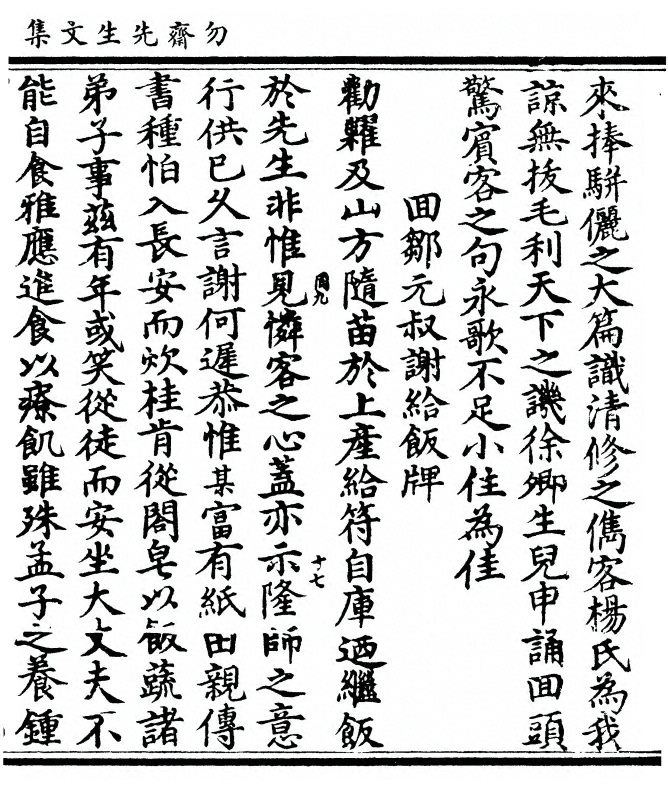 勿齋先生文集
來捧駢儷之大篇識清修之儁客楊氏為我
諒無拔毛利天下之譏徐卿生兒申誦回頭
驚賓客之句永歌不足小住為佳
回鄒元叔謝給飯牌
勸糶及山方隨苗於上產給符自庫迺繼飯
於先生非惟見憐客之心蓋亦示隆師之意
行供已久言謝何遲恭惟某富有紙田親傳
書種怕入長安而炊桂肯從閤皂以飯蔬諸
弟子事茲有年或笑從徒而安坐大丈夫不
能自食雅應進食以療飢雖殊孟子之養鍾
周九
十七